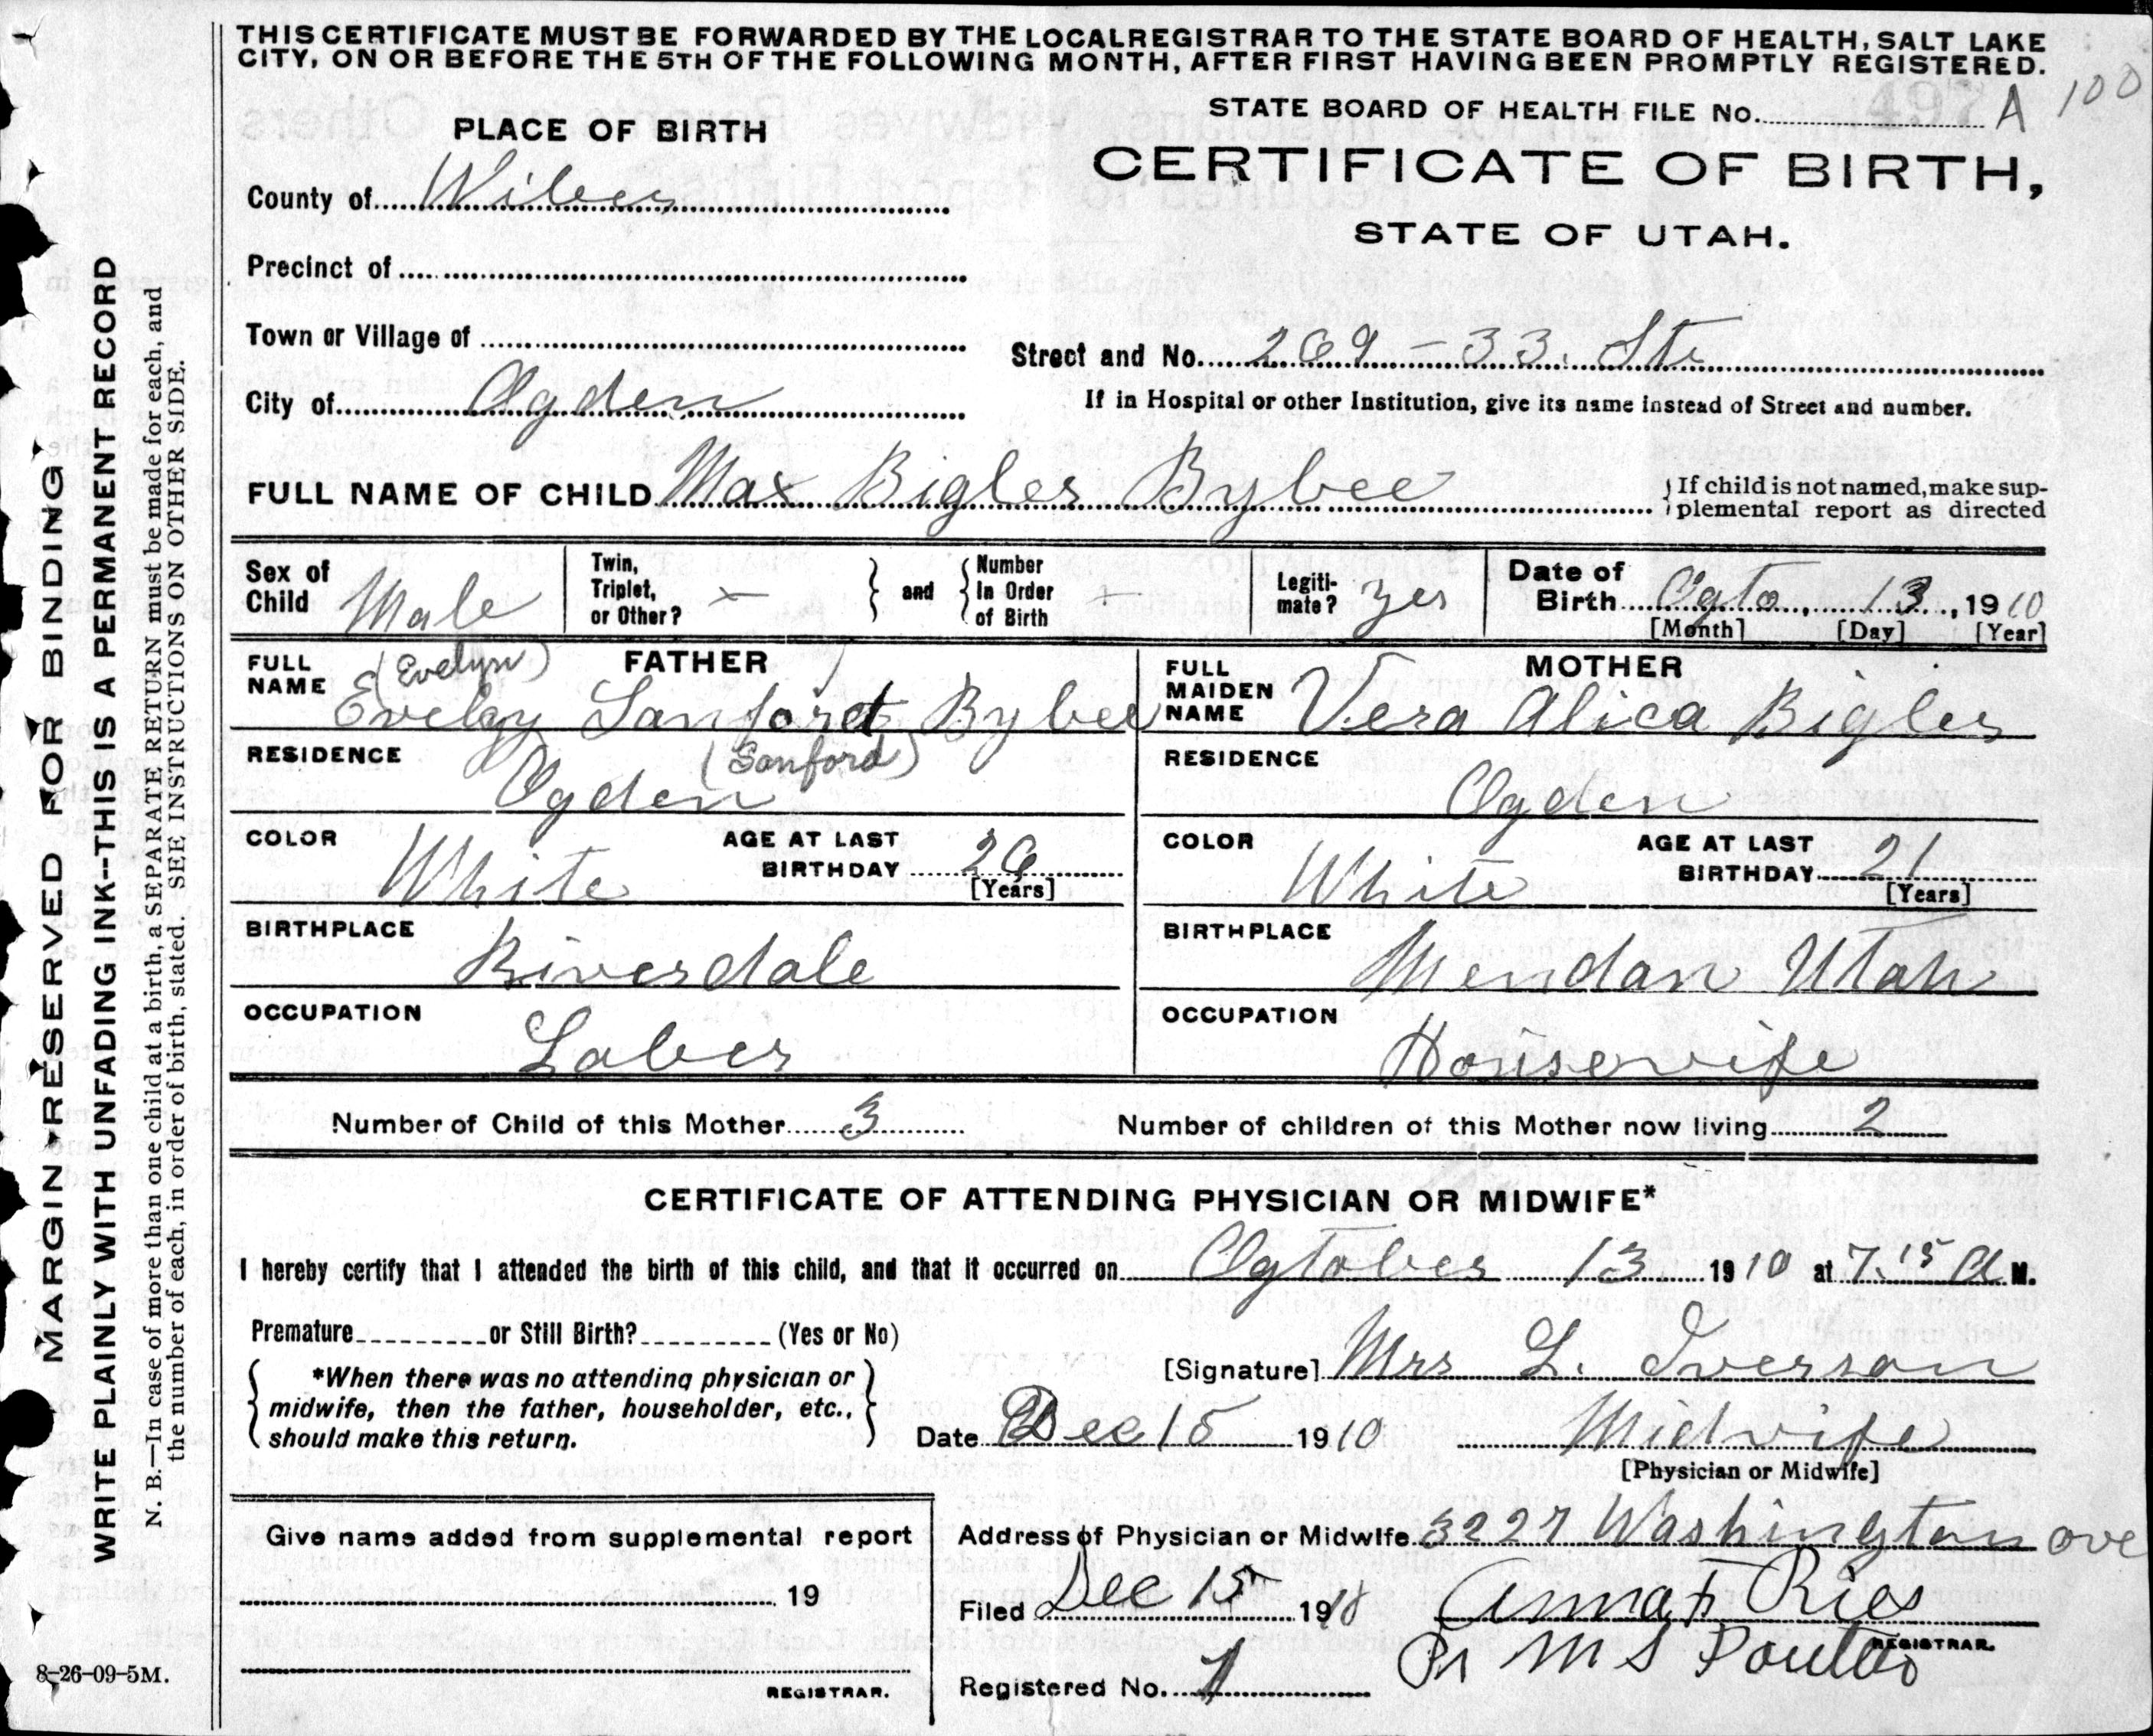 THIS CERTIFICATE MUST BE FORWARDED BY THE LOCAL REGISTRAR TO THE STATE BOARD OF HEALTH, SALT LAKE
CITY, ON OR BEFORE THE 5TH OF THE FOLLOWING MONTH, AFTER FIRST HAVING BEEN PROMPTLY REGISTERED.
STATE BOARD OF HEALTH FILE No. 497 A 100
PLACE OF BIRTH
CERTIFICATE OF BIRTH,
STATE OF UTAH.
County of
Precinct of
Town or Village of
Street and No. 269 - 33. Str
City of Ogden
If in Hospital or other Institution, give its name instead of Street and number.
FULL NAME OF CHILD Max Bigler Bybee
If child is not named, make sup-
plemental report as directed
Sex of Child Male
Twin, Triplet, or Other? —
and
Number in Order of Birth
Legiti-mate? yes
Date of Birth Ogto, 13, 1910
[Month] [Day] [Year]
FATHER
FULL NAME (Evelyn)
Sanford Bybee
(Sanford)
RESIDENCE Ogden
COLOR White
AGE AT LAST BIRTHDAY 26
[Years]
BIRTHPLACE Riverdale
OCCUPATION Laber
MOTHER
FULL MAIDEN NAME Vera Alica Bigler
RESIDENCE Ogden
COLOR White
AGE AT LAST BIRTHDAY 21
[Years]
BIRTHPLACE Mendan Utah
OCCUPATION Housewife
Number of Child of this Mother 3
Number of children of this Mother now living 2
CERTIFICATE OF ATTENDING PHYSICIAN OR MIDWIFE*
I hereby certify that I attended the birth of this child, and that it occurred on Ogtober 13 1910 at 7.15 A M.
Premature or Still Birth? (Yes or No)
[Signature] Mrs L. Iverson
*When there was no attending physician or
midwife, then the father, householder, etc.,
should make this return.
Date Dec 15 1910
Midwife
[Physician or Midwife]
Give name added from supplemental report
19
REGISTRAR.
Address of Physician or Midwife 3227 Washington ave
Filed Dec 15 1910
Anna F Ries
REGISTRAR.
Pr M S Poulter
Registered No. 1
MARGIN RESERVED FOR BINDING
WRITE PLAINLY WITH UNFADING INK--THIS IS A PERMANENT RECORD
N. B.—In case of more than one child at a birth, a SEPARATE RETURN must be made for each, and
the number of each, in order of birth, stated. SEE INSTRUCTIONS ON OTHER SIDE.
8-26-09-5M.